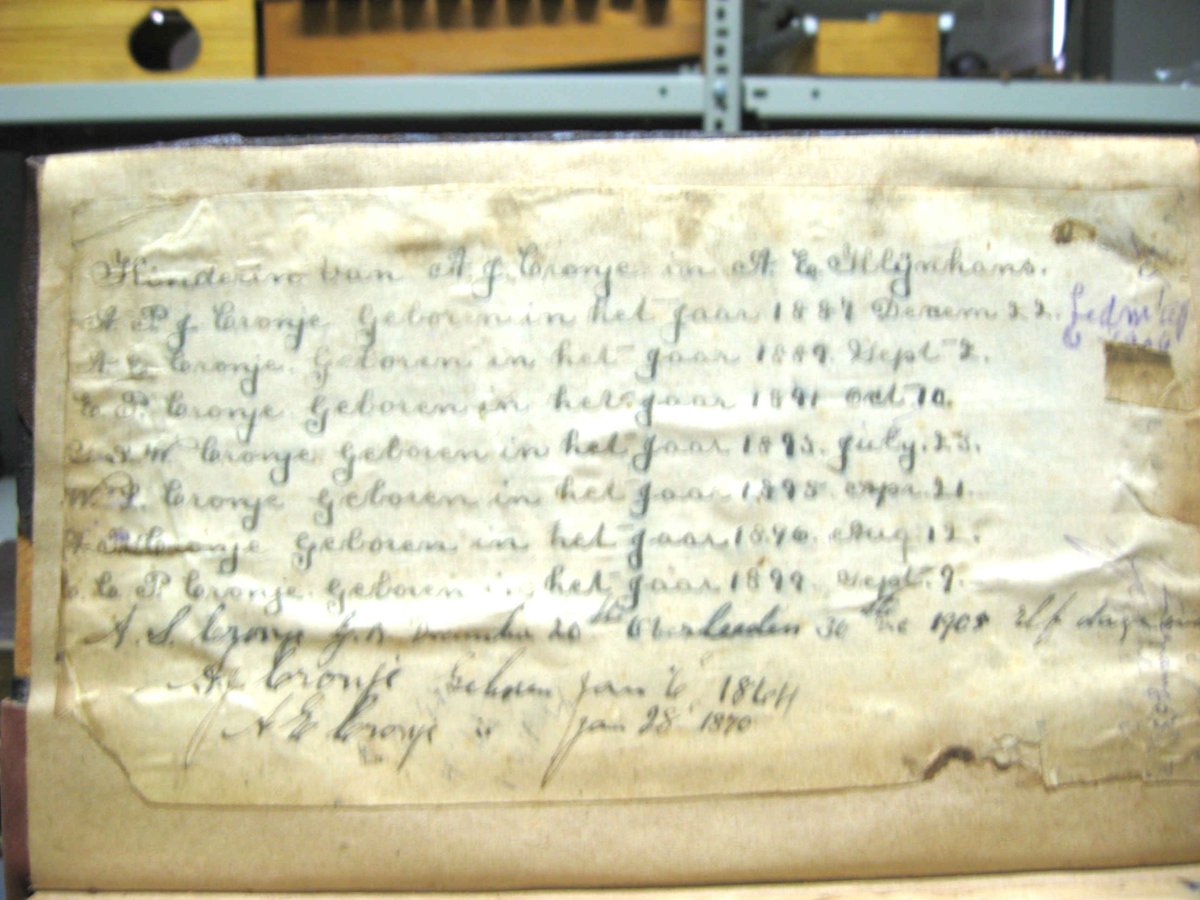 Kinderin van A J Cronje in A E Mlÿnhans.
A P J Cronje Geboren in het Jaar 1887 Desem 22.
A E Cronje. Geboren in het Jaar 1889. Sept 2.
E P. Cronje. Geboren in het Jaar 1891 Oct 10.
W Cronje Geboren in het Jaar 1893. July. 23.
W. P. Cronje Geboren in het Jaar 1895. Apr. 21.
Cronje Geboren in het Jaar 1896. Aug 12.
C P Cronje. Geboren in het Jaar 1899. Sept. 9.
A. S. Cronje 20 ste Overleeden 30 ste 1905 Elf dage
A J Cronje Geboren Jan 6 1864
A E Cronje " Jan 28 1870